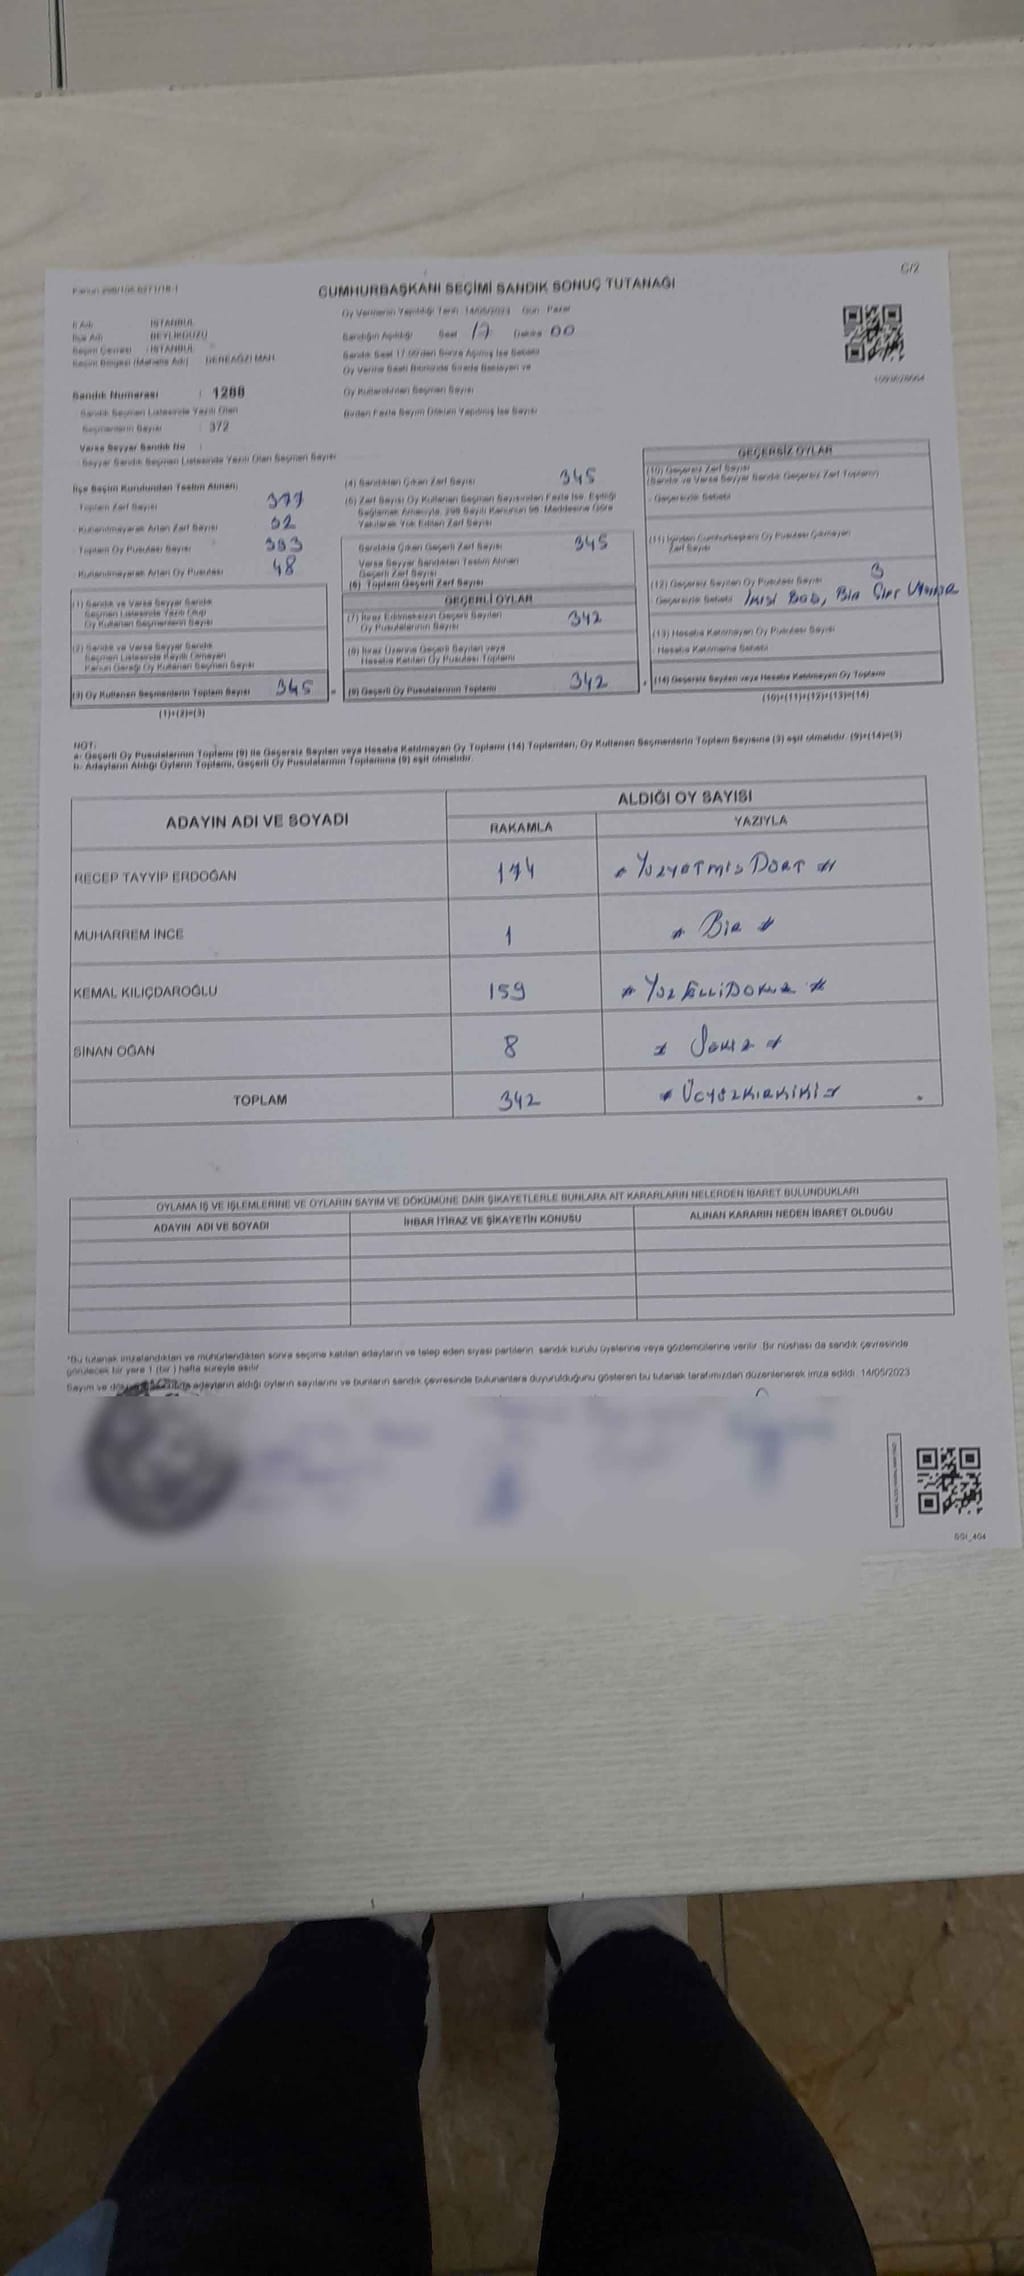 C/2
CUMHURBAŞKANI SEÇİMİ SANDIK SONUÇ TUTANAĞI
İl Adı : İSTANBUL
İlçe Adı : BEYLİKDÜZÜ
Seçim Çevresi : İSTANBUL
Seçim Bölgesi (Mahalle Adı) : DEREAĞZI MAH.
Oy Vermenin Yapıldığı Tarih: 14/05/2023 Gün: Pazar
Sandığın Açıldığı Saat 17 Dakika 00
Sandık Saat 17.00'den Sonra Açılmış İse Sebebi
Oy Verme Saati Bitiminde Sırada Bekleyen ve
Oy Kullandırılan Seçmen Sayısı
Birden Fazla Sayım Döküm Yapılmış İse Sayısı
Sandık Numarası : 1288
Sandık Seçmen Listesinde Yazılı Olan
Seçmenlerin Sayısı : 372
Varsa Seyyar Sandık No :
Seyyar Sandık Seçmen Listesinde Yazılı Olan Seçmen Sayısı
İlçe Seçim Kurulundan Teslim Alınan;
Toplam Zarf Sayısı 377
Kullanılmayarak Artan Zarf Sayısı 32
Toplam Oy Pusulası Sayısı 393
Kullanılmayarak Artan Oy Pusulası 48
(1) Sandık ve Varsa Seyyar Sandık
Seçmen Listesinde Yazılı Olup
Oy Kullanan Seçmenlerin Sayısı
(2) Sandık ve Varsa Seyyar Sandık
Seçmen Listesinde Kayıtlı Olmayan
Kanun Gereği Oy Kullanan Seçmen Sayısı
(3) Oy Kullanan Seçmenlerin Toplam Sayısı 345
(1)+(2)=(3)
(4) Sandıktan Çıkan Zarf Sayısı 345
(5) Zarf Sayısı Oy Kullanan Seçmen Sayısından Fazla İse, Eşitliği
Sağlamak Amacıyla, 298 Sayılı Kanunun 98. Maddesine Göre
Yakılarak Yok Edilen Zarf Sayısı
Sandıkta Çıkan Geçerli Zarf Sayısı 345
Varsa Seyyar Sandıktan Teslim Alınan
Geçerli Zarf Sayısı
(6) Toplam Geçerli Zarf Sayısı
GEÇERLİ OYLAR
(7) İtiraz Edilmeksizin Geçerli Sayılan
Oy Pusulalarının Sayısı 342
(8) İtiraz Üzerine Geçerli Sayılan veya
Hesaba Katılan Oy Pusulası Toplamı
(9) Geçerli Oy Pusulalarının Toplamı 342
GEÇERSİZ OYLAR
(10) Geçersiz Zarf Sayısı
(Sandık ve Varsa Seyyar Sandık Geçersiz Zarf Toplamı)
Geçersizlik Sebebi
(11) İçinden Cumhurbaşkanı Oy Pusulası Çıkmayan
Zarf Sayısı
(12) Geçersiz Sayılan Oy Pusulası Sayısı 3
Geçersizlik Sebebi İkisi Boş, Bir Çift
(13) Hesaba Katılmayan Oy Pusulası Sayısı
Hesaba Katılmama Sebebi
(14) Geçersiz Sayılan veya Hesaba Katılmayan Oy Toplamı
(10)+(11)+(12)+(13)=(14)
NOT:
a- Geçerli Oy Pusulalarının Toplamı (9) ile Geçersiz Sayılan veya Hesaba Katılmayan Oy Toplamı (14) Toplamları, Oy Kullanan Seçmenlerin Toplam Sayısına (3) eşit olmalıdır. (9)+(14)=(3)
b- Adayların Aldığı Oyların Toplamı, Geçerli Oy Pusulalarının Toplamına (9) eşit olmalıdır.
ADAYIN ADI VE SOYADI ALDIĞI OY SAYISI
RAKAMLA YAZIYLA
RECEP TAYYİP ERDOĞAN 174 * YÜZYETMİŞDÖRT *
MUHARREM İNCE 1 * BİR *
KEMAL KILIÇDAROĞLU 159 * YÜZELLİDOKUZ *
SİNAN OĞAN 8 * SEKİZ *
TOPLAM 342 * ÜÇYÜZKIRKİKİ *
OYLAMA İŞ VE İŞLEMLERİNE VE OYLARIN SAYIM VE DÖKÜMÜNE DAİR ŞİKAYETLERLE BUNLARA AİT KARARLARIN NELERDEN İBARET BULUNDUKLARI
ADAYIN ADI VE SOYADI İHBAR İTİRAZ VE ŞİKAYETİN KONUSU ALINAN KARARIN NEDEN İBARET OLDUĞU
*Bu tutanak imzalandıktan ve mühürlendikten sonra seçime katılan adayların ve talep eden siyasi partilerin sandık kurulu üyelerine veya gözlemcilerine verilir. Bir nüshası da sandık çevresinde
görülecek bir yere 1 (bir) hafta süreyle asılır.
Sayım ve adayların aldığı oyların sayılarını ve bunların sandık çevresinde bulunanlara duyurulduğunu gösteren bu tutanak tarafımızdan düzenlenerek imza edildi. 14/05/2023